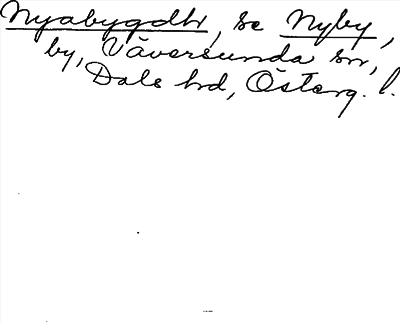 Nyabygdhr, se Nyby,
by, Väversunda sn,
Dals hd, Österg. l.